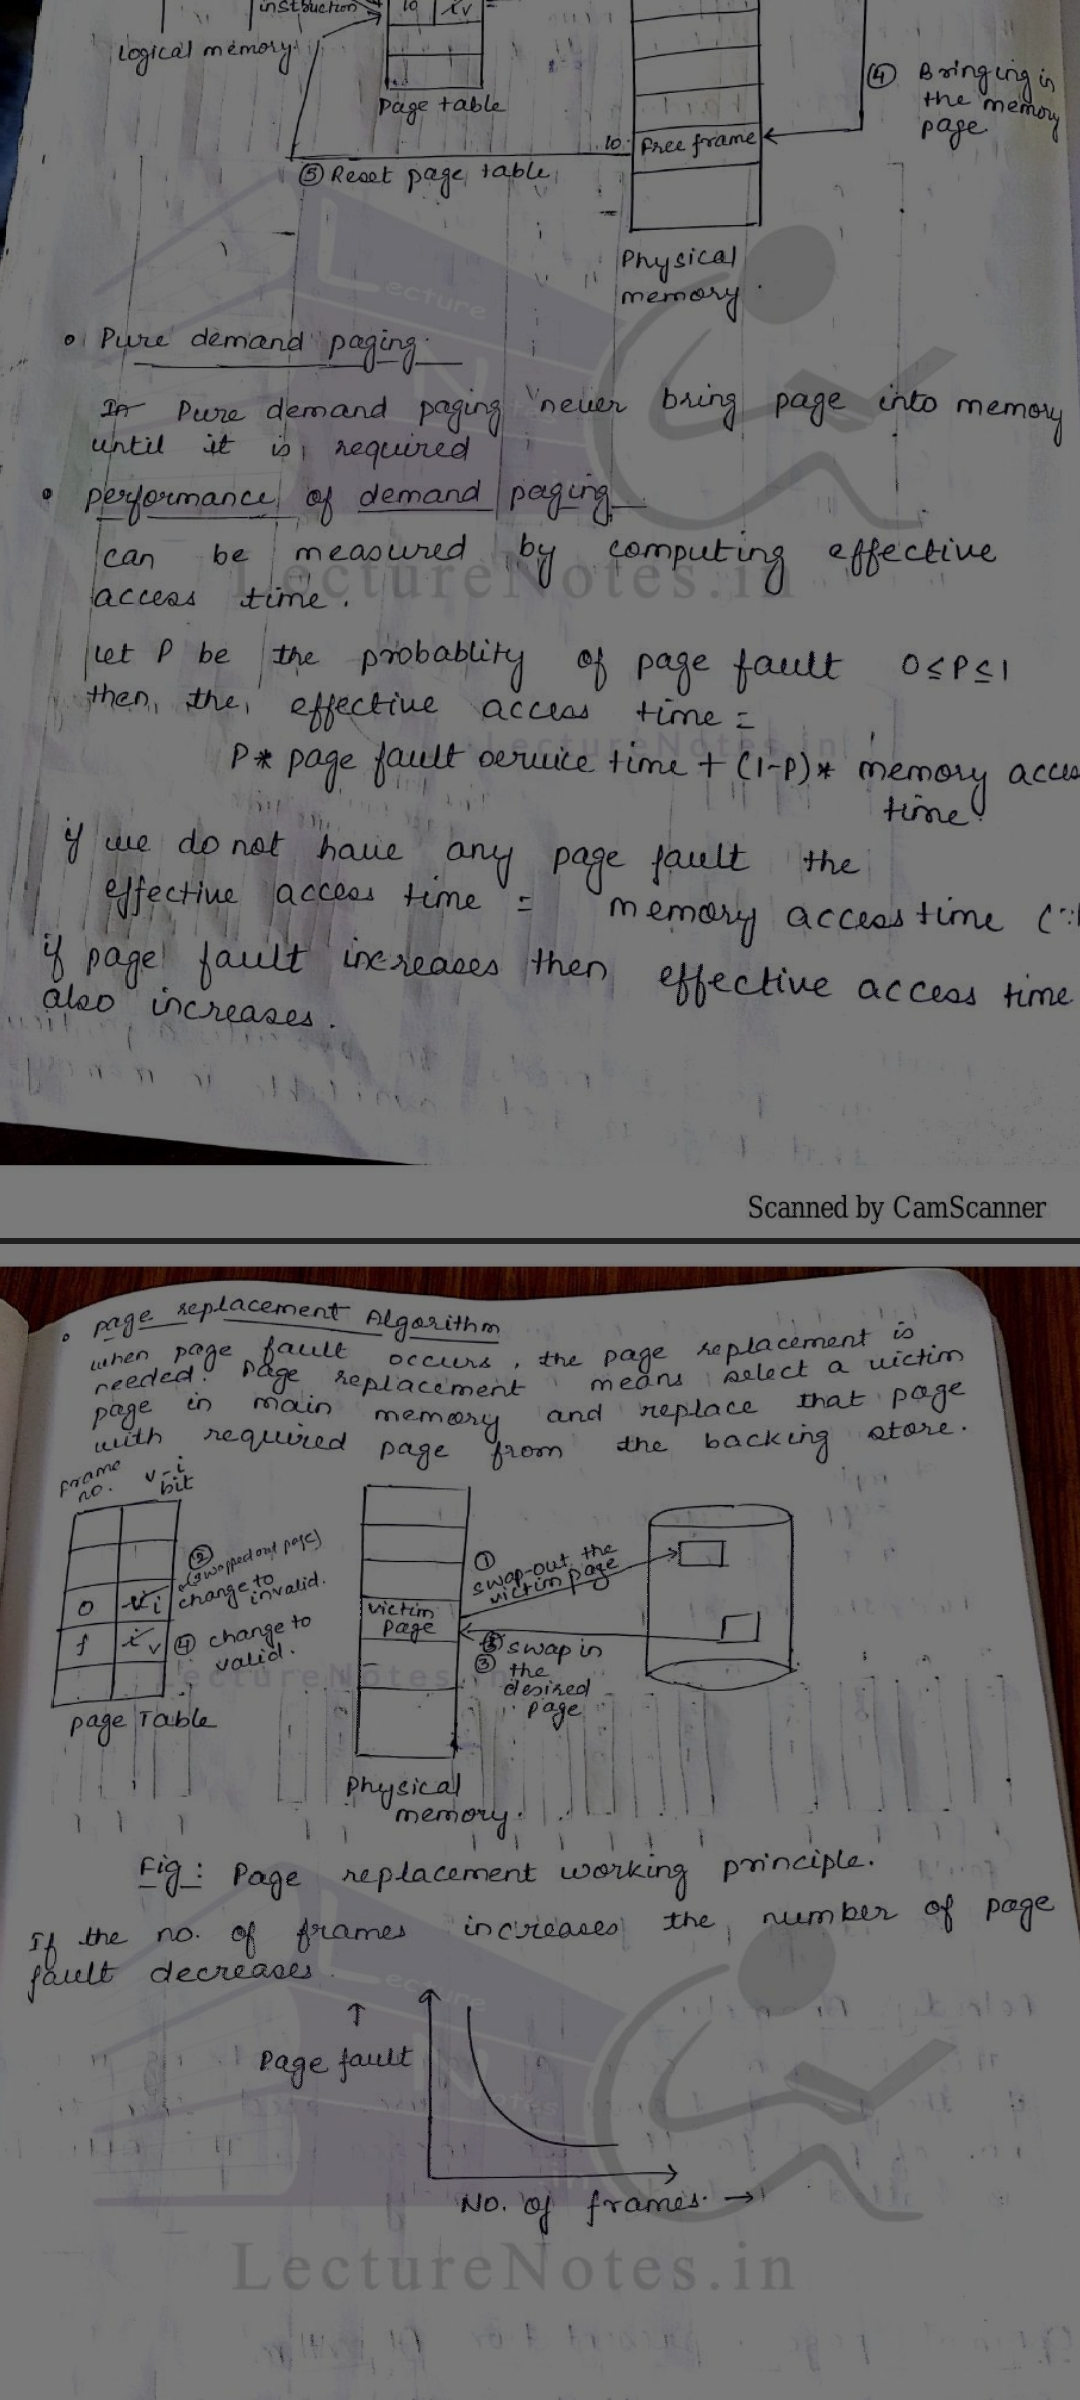 instruction
10 i v
Logical memory
page table
④ Bringing in
the memory
page
10. Free frame
⑤ Reset page table
Physical
memory.
Lecture
N
• Pure demand paging.
In Pure demand paging never bring page into memory
until it is required
• performance of demand paging
can be measured by computing effective
access time.
LectureNotes.in
Let P be the probablity of page fault 0≤P≤1
then, the, effective access time =
LectureNotes.in
P* page fault service time + (1-P)* memory acces
time.
if we do not have any page fault the
effective access time = memory access time (∵
if page fault increases then effective access time
also increases.
Scanned by CamScanner
• page replacement Algorithm
when page fault occurs, the page replacement is
needed. Page replacement means select a victim
page in main memory and replace that page
with required page from the backing store.
Frame no. v-i bit
② (swapped out page)
change to
invalid.
0 v i
f i v
④ change to
valid.
page Table
victim
page
① swap-out the
victim page
③ swap in
③ the
desired
page
LectureNotes.in
Physical
memory.
Fig: Page replacement working principle.
If the no. of frames increases the number of page
fault decreases.
Lecture
Notes
↑
Page fault
No. of frames. →
LectureNotes.in